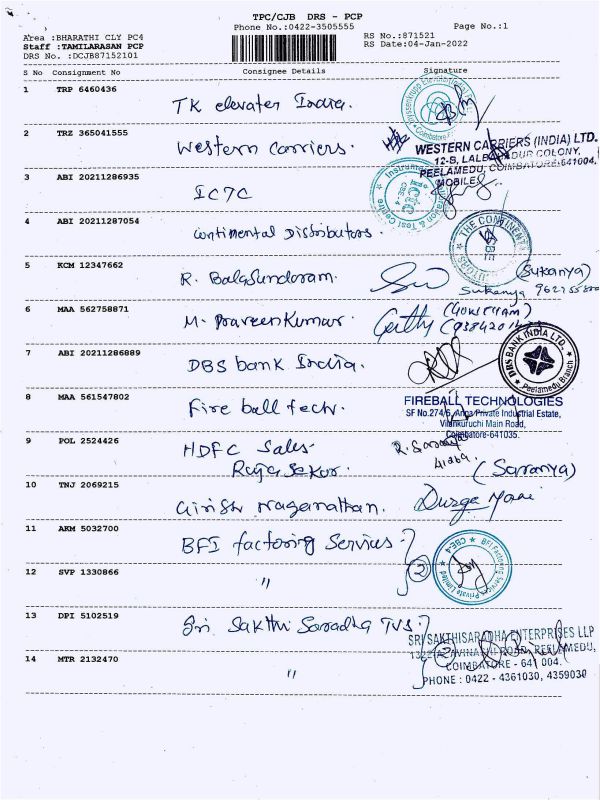 TPC/CJB DRS - PCP
Phone No.:0422-3505555
Page No.:1
Area :BHARATHI CLY PC4
RS No.:871521
Staff :TAMILARASAN PCP
RS Date:04-Jan-2022
DRS No. :DCJB87152101
S No Consignment No Consignee Details Signature
1 TRP 6460436 TK elevator India.
2 TRZ 365041555 Western Carriers.
WESTERN CARRIERS (INDIA) LTD.
12-B, LALBAHADUR COLONY,
PEELAMEDU, COIMBATORE-641004.
MOBILE
3 ABI 20211286935 IC7C
4 ABI 20211287054 Continental Distributors.
THE CONTINENTAL
5 KCM 12347662 R. BalaSundaram.
(Sukanya)
Sukanya
6 MAA 562758871 M. PraveenKumar.
7 ABI 20211286889 DBS bank India.
DBS BANK INDIA LTD.
Peelamedu Branch
8 MAA 561547802 Fire ball tech.
FIREBALL TECHNOLOGIES
SF No.274/6, Anna Private Industrial Estate,
Vilankuruchi Main Road,
Coimbatore-641035.
9 POL 2524426 HDFC Sales
RajaSekar.
(Saranya)
10 TNJ 2069215 Girish Naganathan.
11 AKM 5032700 BFI factoring Services
2
BFI Factoring Services Private Limited
CBE-4
12 SVP 1330866 "
13 DPI 5102519 Sri Sakthi Saradha TVS
SRI SAKTHISARADHA ENTERPRISES LLP
AVINASHI ROAD, PEELAMEDU,
COIMBATORE - 641 004.
PHONE : 0422 - 4361030, 4359030
14 MTR 2132470 "